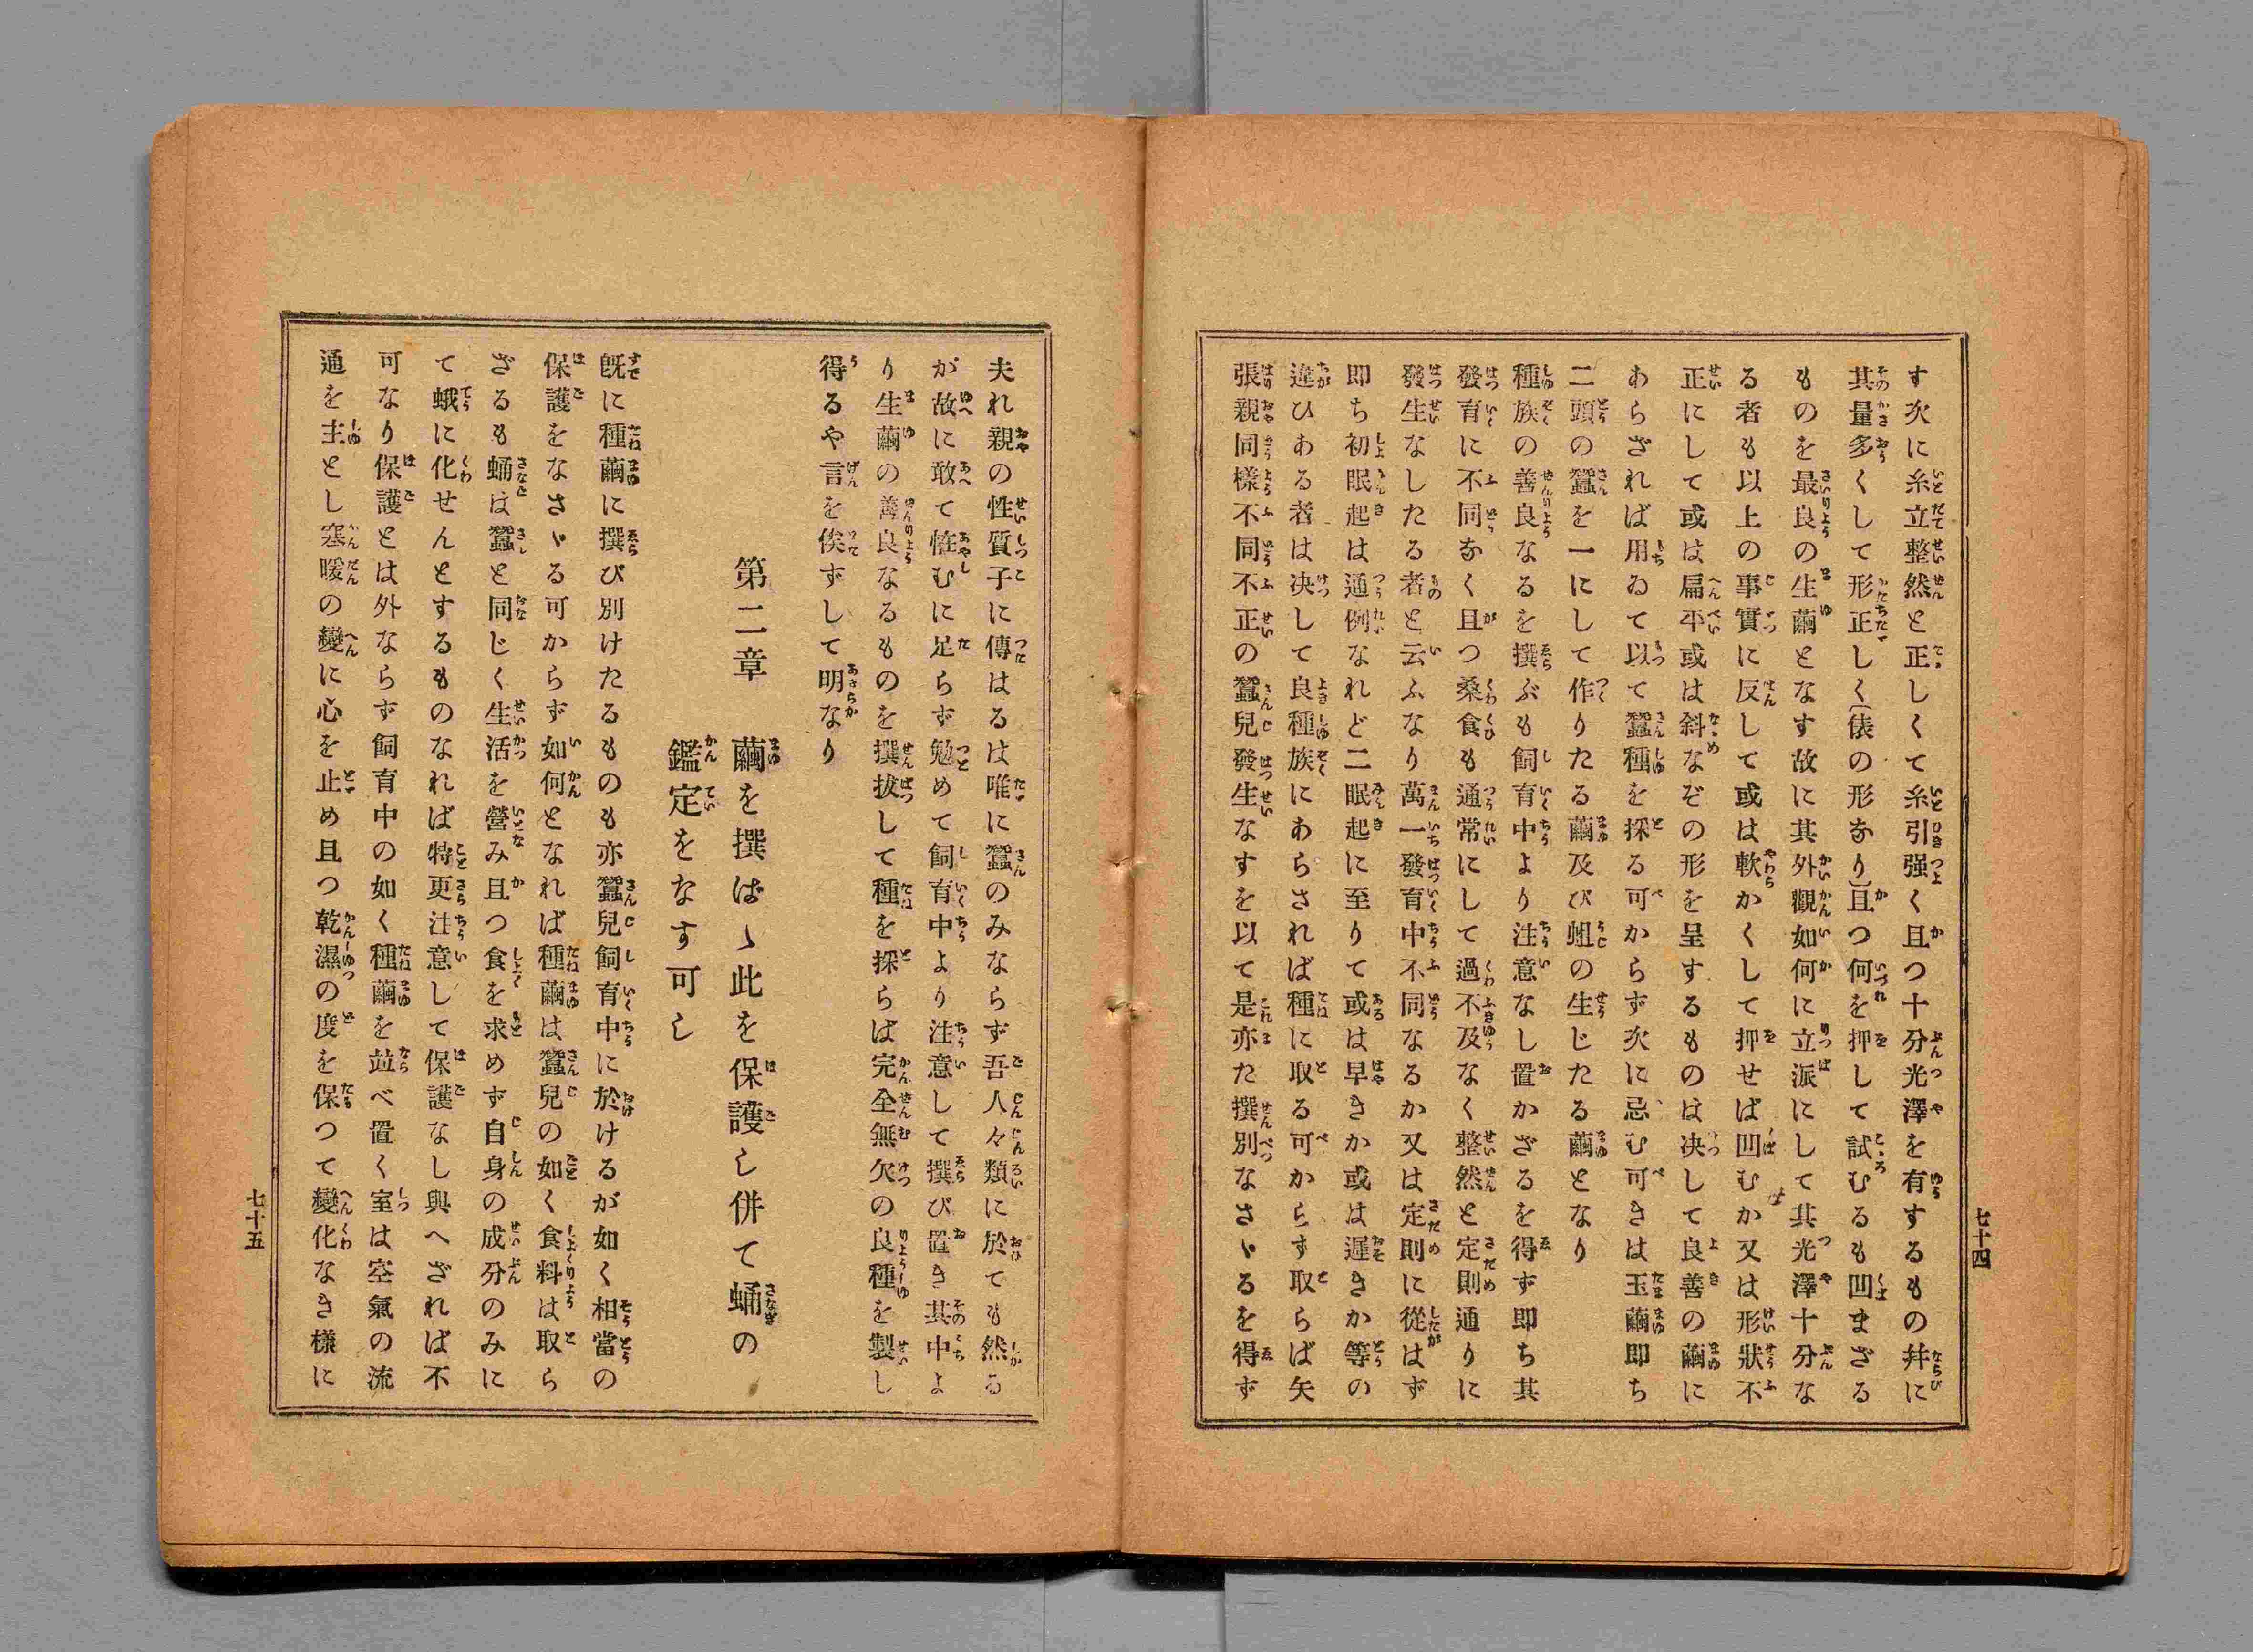 す次に糸立整然と正しくて糸引强く且つ十分光澤を有するもの幷に
其量多くして形正しく(俵の形なり)且つ何を押して試むるも凹まざる
ものを最良の生繭となす故に其外觀如何に立派にして其光澤十分な
る者も以上の事實に反して或は軟かくして押せば凹むか又は形狀不
正にして或は扁平或は斜なぞの形を呈するものは决して良善の繭に
あらざれば用ゐて以て蠶種を採る可からず次に忌む可きは玉繭即ち
二頭の蠶を一にして作りたる繭及び蛆の生じたる繭となり
種族の善良なるを撰ぶも飼育中より注意なし置かざるを得ず即ち其
發育に不同なく且つ桑食も通常にして過不及なく整然と定則通りに
發生なしたる者と云ふなり萬一發育中不同なるか又は定則に從はず
即ち初眠起は通例なれど二眠起に至りて或は早きか或は遲きか等の
違ひある者は决して良種族にあらされば種に取る可からず取らば矢
張親同樣不同不正の蠶兒發生なすを以て是亦た撰別なさゝるを得ず
七十四
夫れ親の性質子に傳はるは唯に蠶のみならず吾人々類に於ても然る
が故に敢て恠むに足らず勉めて飼育中より注意して撰び置き其中よ
り生繭の善良なるものを撰拔して種を採らば完全無欠の良種を製し
得るや言を俟ずして明なり
第二章　繭を撰ばゝ此を保護し併て蛹の
鑑定をなす可し
旣に種繭に撰び別けたるものも亦蠶兒飼育中に於けるが如く相當の
保護をなさゝる可からず如何となれば種繭は蠶兒の如く食料は取ら
ざるも蛹は蠶と同じく生活を營み且つ食を求めず自身の成分のみに
て蛾に化せんとするものなれば特更注意して保護なし與へざれば不
可なり保護とは外ならず飼育中の如く種繭を並べ置く室は空氣の流
通を主とし寒暖の變に心を止め且つ乾濕の度を保つて變化なき樣に
七十五